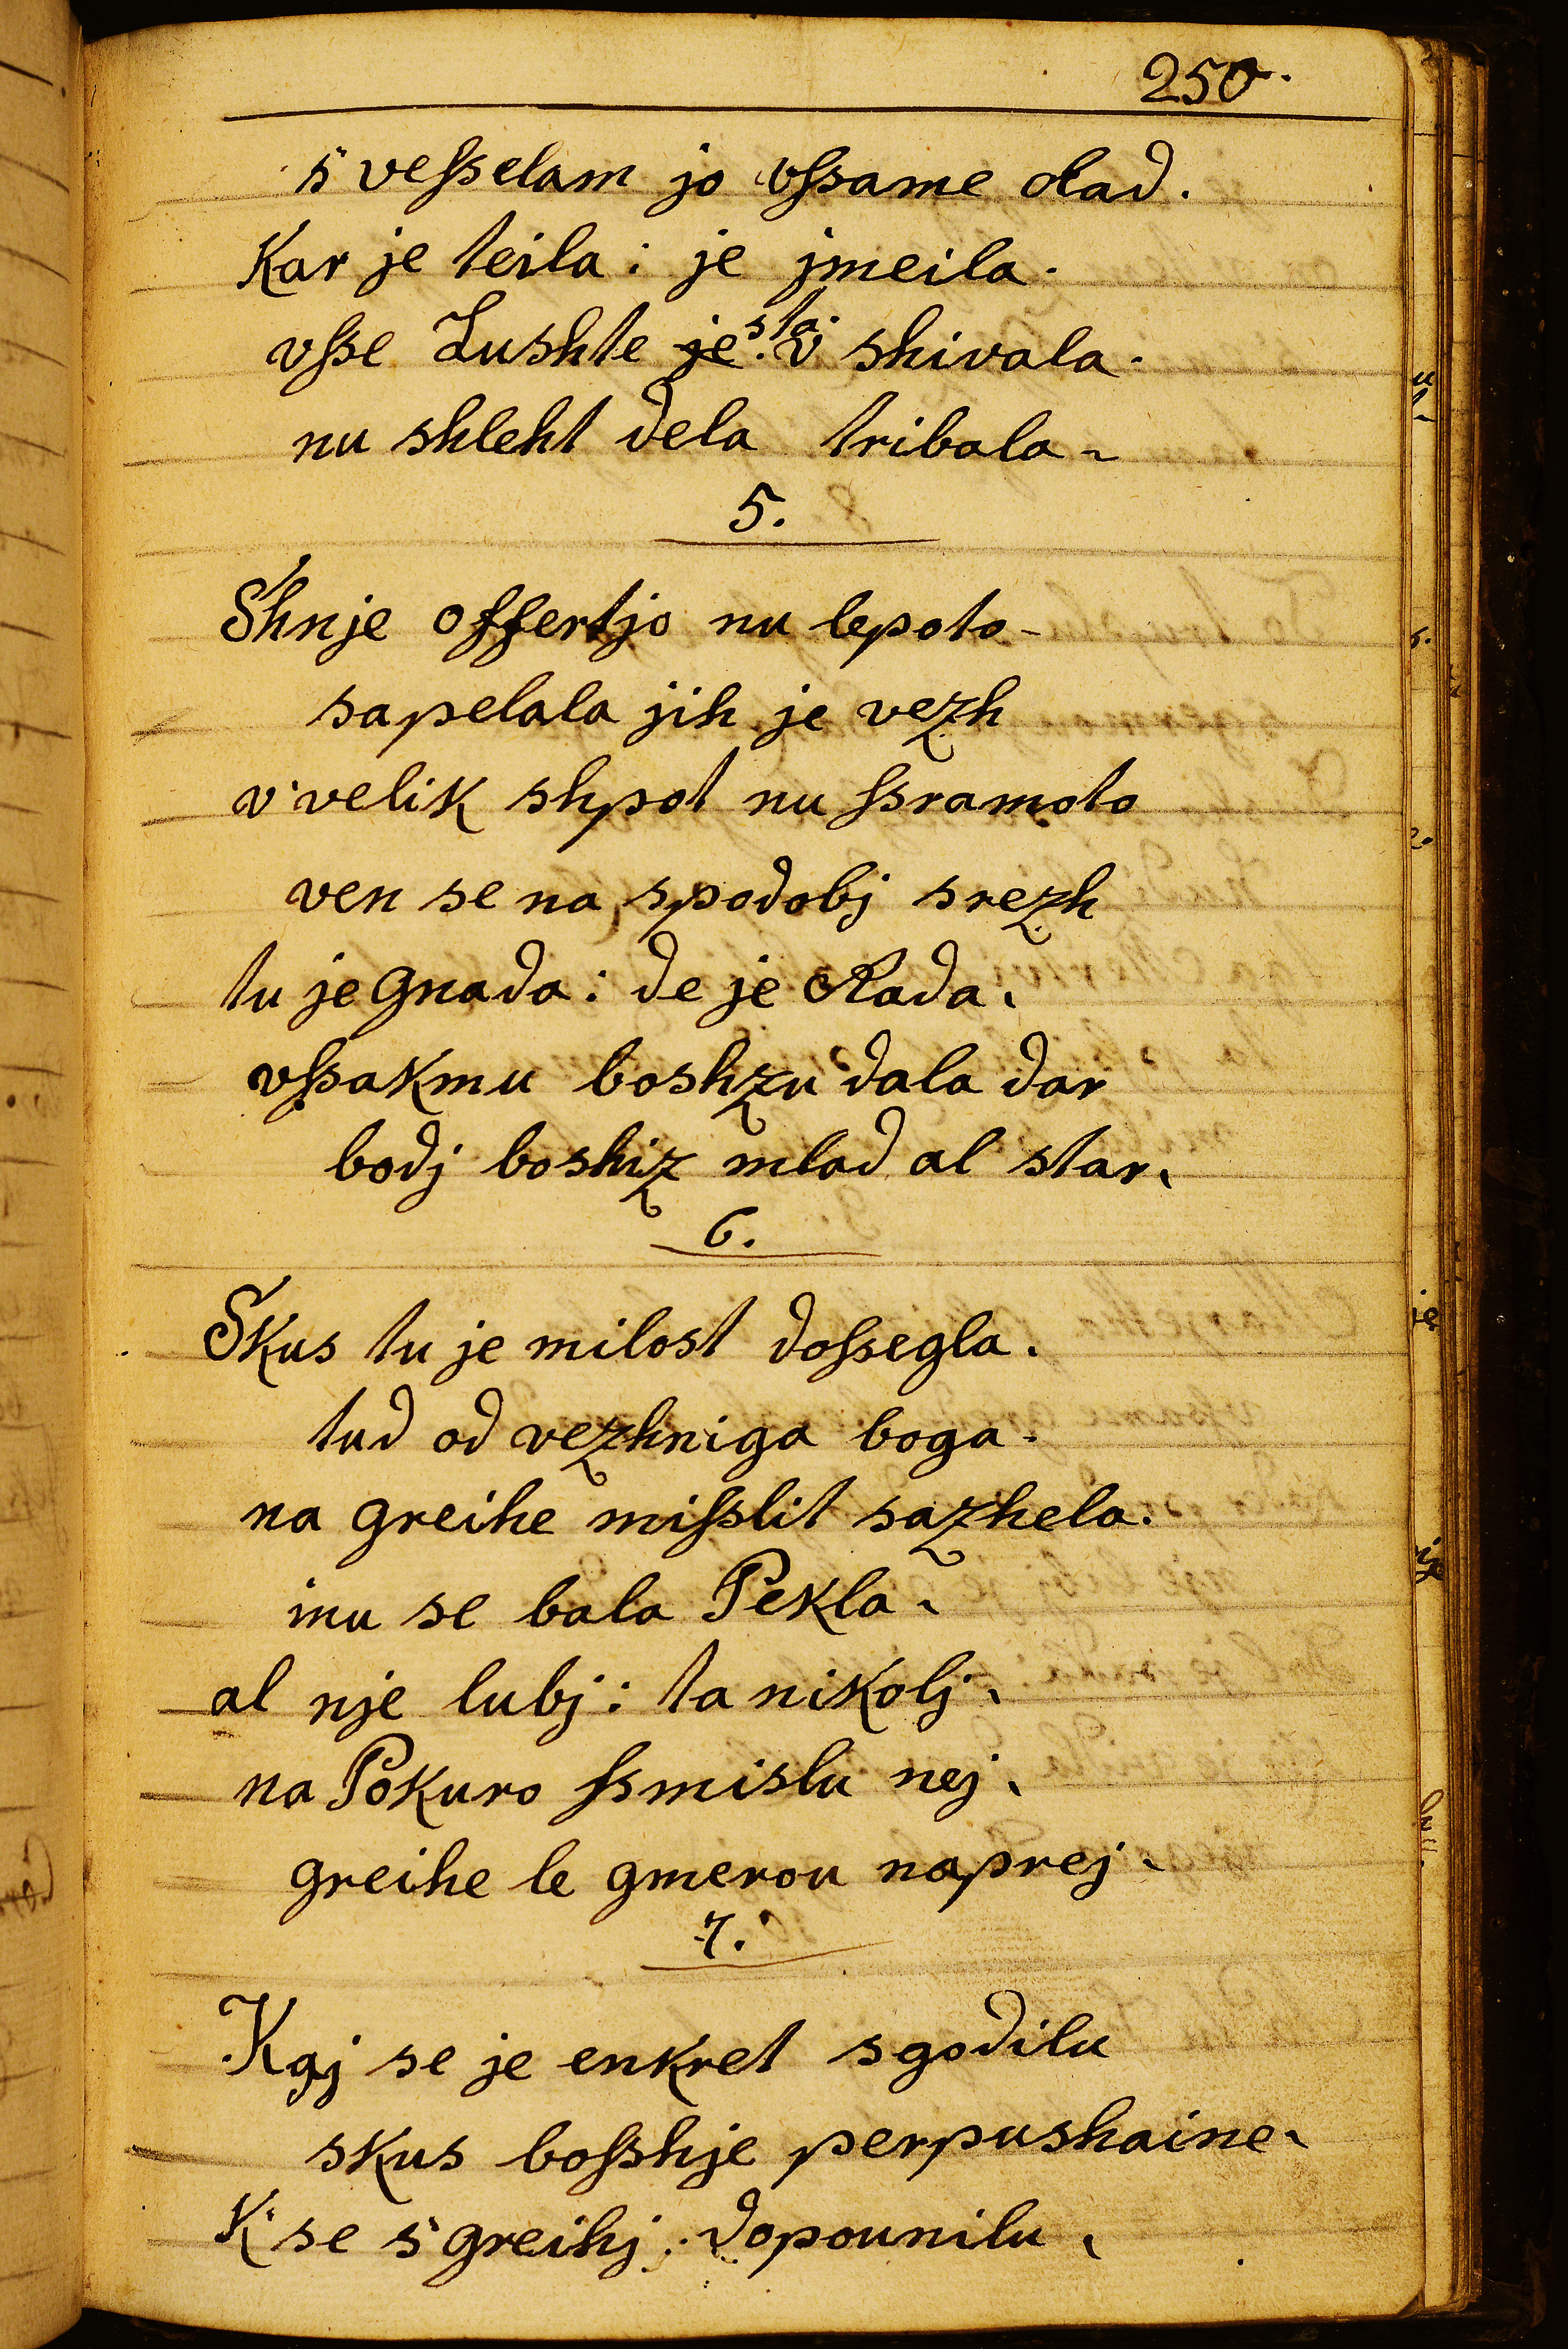 250.
s' vesselam jo vssame rad.
Kar je teila: je jmeila.
vsse Lushte je sta. v shivala.
nu shleht dela tribala.
5.
Shnje offertjo nu lepoto
sapelala jih je vezh
v' velik shpot nu ssramoto
ven se na spodobj srezh
tu je gnada: de je Rada.
vssakmu boshzu dala dar
bodj boshiz mlad al star.
6.
Skus tu je milost dossegla.
tud od vezhniga boga.
na greihe misslit sazhela.
inu se bala Pekla.
al nje lubj: ta nikolj.
na Pokuro ssmislu nej.
greihe le gmerou naprej.
7.
Kaj se je enkret sgodilu
skus bosshje perpushaine.
K' se s' greihj dopounilu.